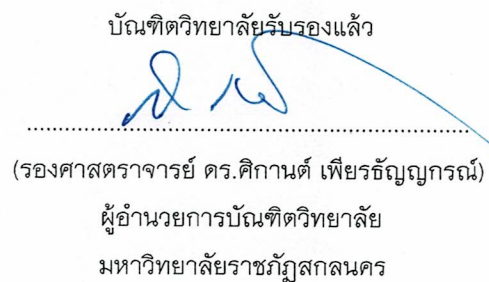 บัณฑิตวิทยาลัยรับรองแล้ว
(รองศาสตราจารย์ ดร.ศิกานต์ เพียรธัญญกรณ์)
ผู้อำนวยการบัณฑิตวิทยาลัย
มหาวิทยาลัยราชภัฏสกลนคร